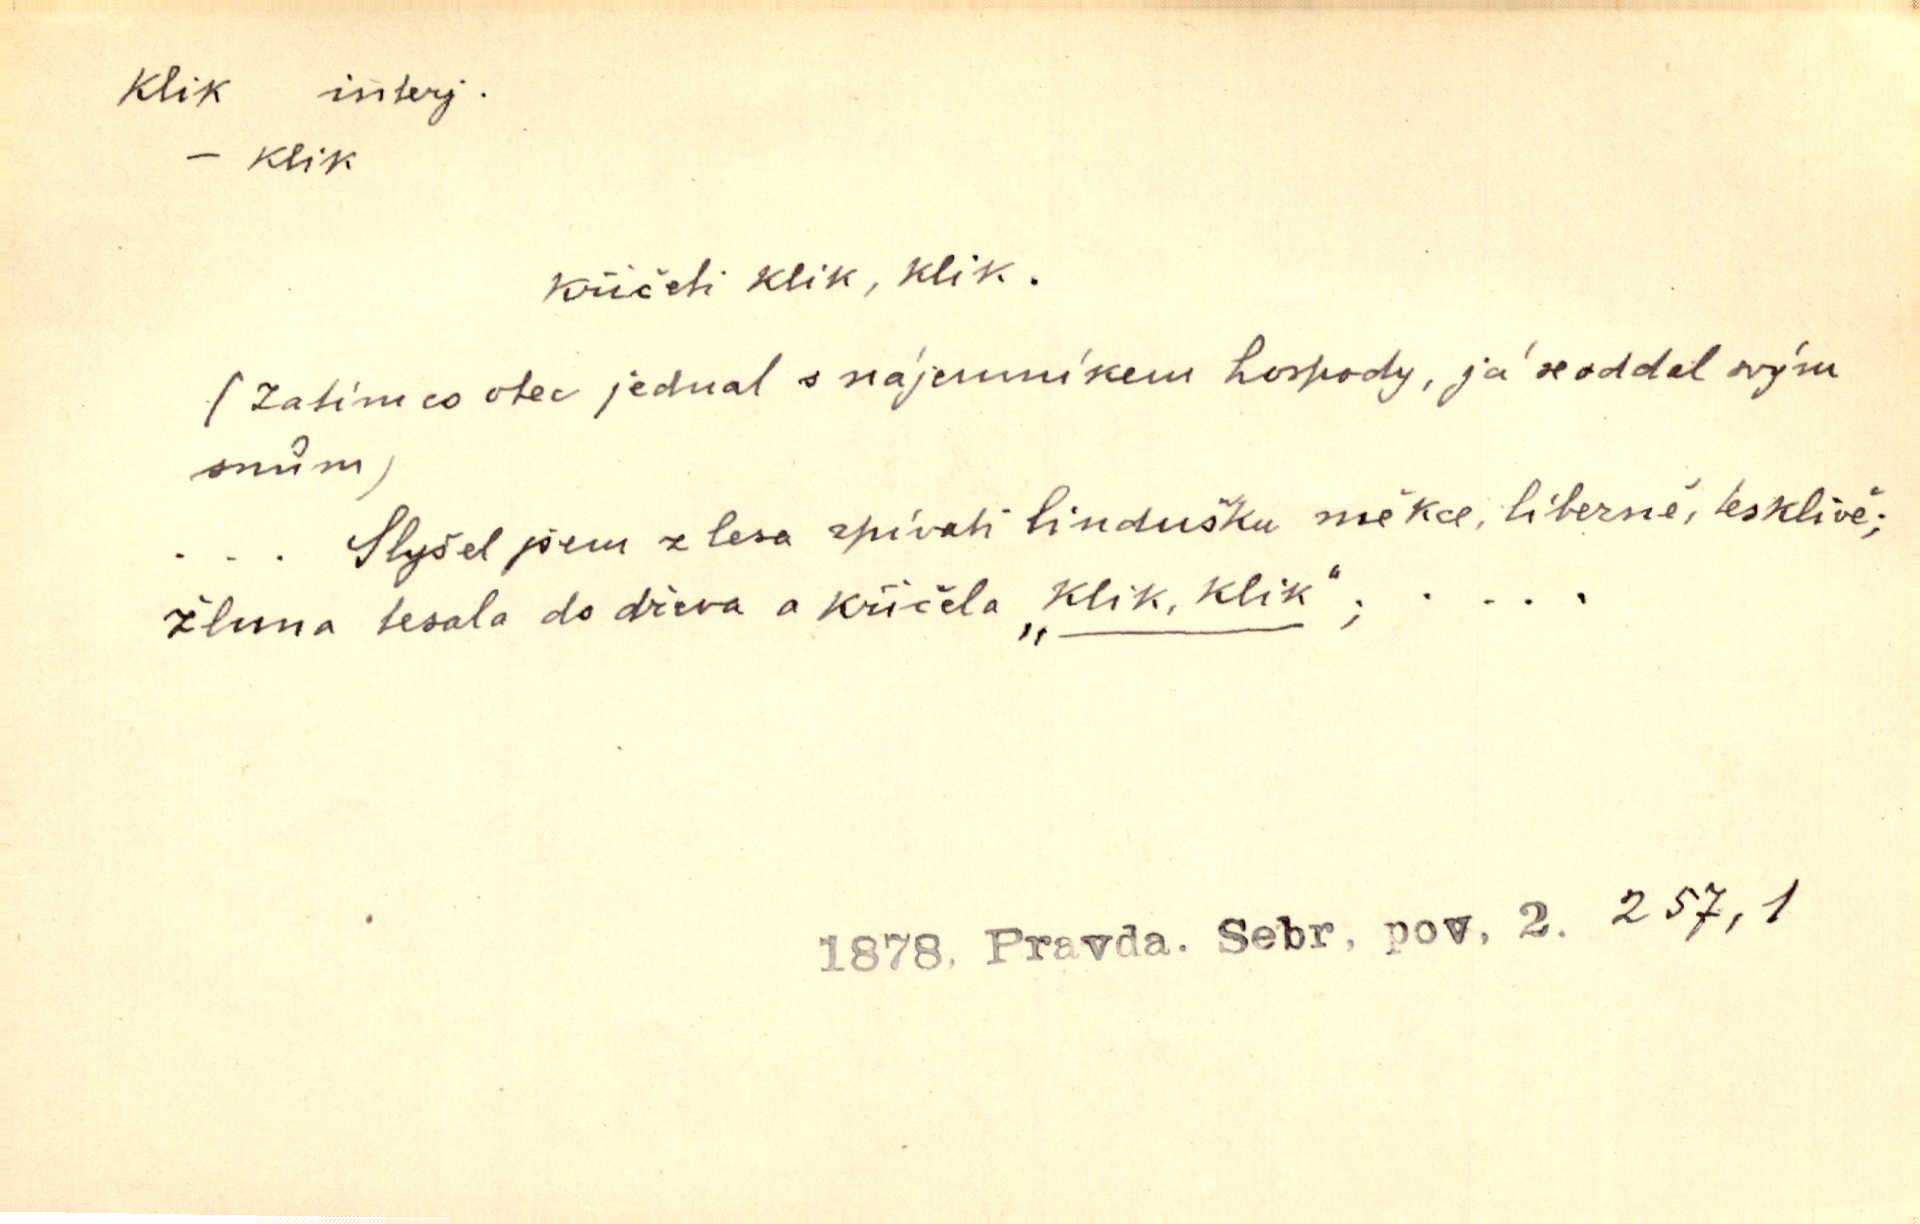 klik interj.
– klik
křičeti klik, klik.
(Zatím co otec jednal s nájemníkem hospody, já se oddal svým
snům)
. . . Slyšel jsem z lesa zpívati lindušku měkce, líbezně, tesklivě;
žluna tesala do dřeva a křičela „klik, klik“; . . . .
1878. Pravda. Sebr. pov. 2. 257, 1